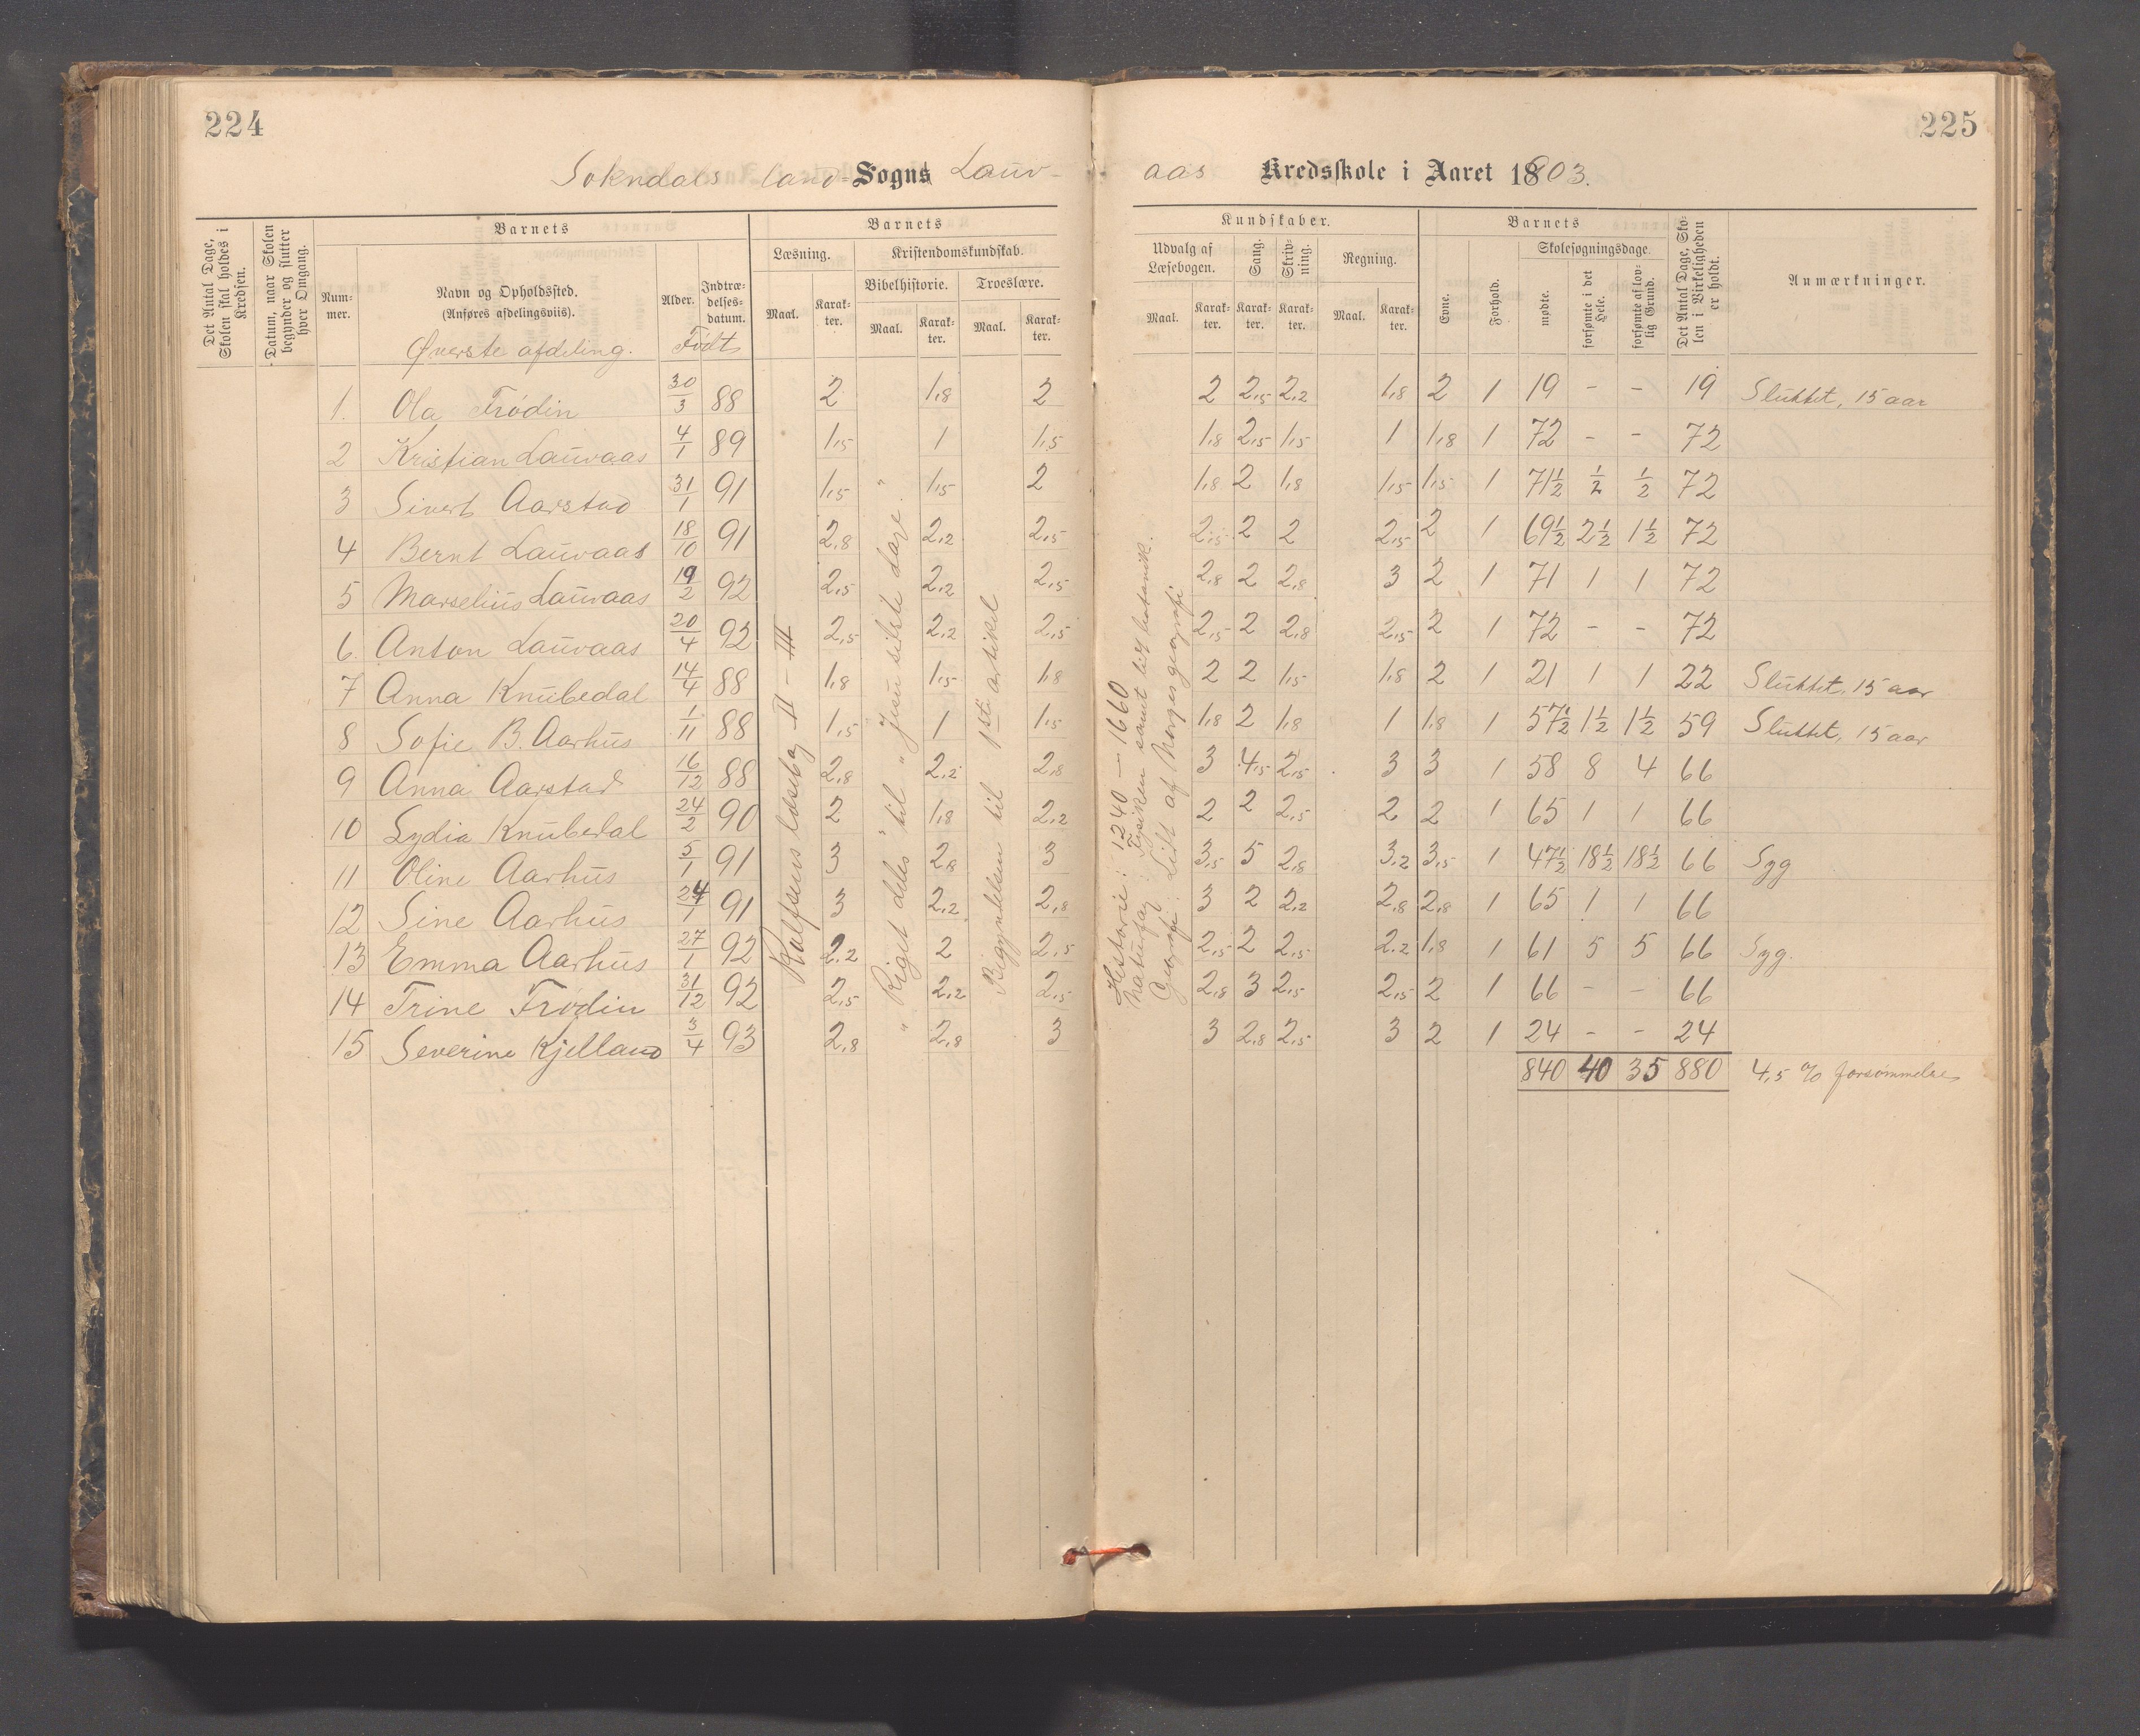 224
225
Sokndals land-Sogns Lauv-
aas Kredsskole i Aaret 1903.
Det Antal Dage, Skolen skal holdes i Kredsen.
Datum, naar Skolen begynder og slutter hver Omgang.
Barnets
Num-mer.
Navn og Opholdssted.
(Anføres afdelingsviis).
Øverste afdeling.
Alder.
Indtræ-delses-datum.
Født
Barnets
Læsning.
Maal.
Karak-ter.
Kristendomskundskab.
Bibelhistorie.
Maal.
Karak-ter.
Troeslære.
Maal.
Karak-ter.
Kundskaber.
Udvalg af Læsebogen.
Maal.
Karak-ter.
Sang.
Karak-ter.
Skriv-ning.
Karak-ter.
Regning.
Maal.
Karak-ter.
Barnets
Evne.
Forhold.
Skolesøgningsdage.
mødte.
forsømte i det Hele.
forsømte af lov-lig Grund.
Det Antal Dage, Sko-len i Virkeligheden er holdt.
Anmærkninger.
1. Ola Frødin 30/3 88 2 1,8 2 2 2,5 2,2 1,8 2 1 19 - - 19 Sluttet, 15 aar
2 Kristian Lauvaas 4/1 89 1,5 1 1,5 1,8 2,5 1,5 1 1,8 1 72 - - 72
3 Sivert Aarstad 31/1 91 1,5 1,5 2 1,8 2 1,8 1,5 1,5 1 71½ ½ ½ 72
4 Bernt Lauvaas 18/10 91 2,8 2,2 2,5 2,5 2 2 2,5 2 1 69½ 2½ 1½ 72
5 Marselius Lauvaas 19/2 92 2,5 2,2 2,5 2,8 2 2,8 3 2 1 71 1 1 72
6. Anton Lauvaas 20/4 92 2,5 2,2 2,5 2,5 2 2,8 2,5 2 1 72 - - 72
7 Anna Knubedal 14/4 88 1,8 1,5 1,8 2 2 1,5 1,8 2 1 21 1 1 22 Sluttet, 15 aar
8 Sofie B. Aarhus 1/11 88 1,5 1 1,5 1,8 2 1,8 1 1,8 1 57½ 1½ 1½ 59 Sluttet, 15 aar
9 Anna Aarstad 16/12 88 2,8 2,2 2,8 3 4,5 2,5 3 3 1 58 8 4 66
10 Lydia Knubedal 24/2 90 2 1,8 2,2 2 2 2,5 2 2 1 65 1 1 66
11 Oline Aarhus 5/1 91 3 2,8 3 3,5 5 2,8 3,2 3,5 1 47½ 18½ 18½ 66 Syg
12 Sine Aarhus 24/1 91 3 2,2 2,8 3 2 2,2 2,8 2,8 1 65 1 1 66
13 Emma Aarhus 27/1 92 2,2 2 2,5 2,5 2 2,5 2,2 1,8 1 61 5 5 66 Syg.
14 Trine Frødin 31/12 92 2,5 2,2 2,5 2,8 3 2,5 2,5 2 1 66 - - 66
15 Severine Kjelland 3/4 93 2,8 2,8 3 3 2,8 2,5 3 2 1 24 - - 24
840 40 35 880 4,5 % forsømmelse
Rolfsens læsebog II - III
"Riget deles" til "Jesu sidste dage."
Begyndelsen til 1ste artikel
Historie: 1240 - 1660
Naturfag: Fysiken samt lidt botanik.
Geografi: Lidt af Norges geografi